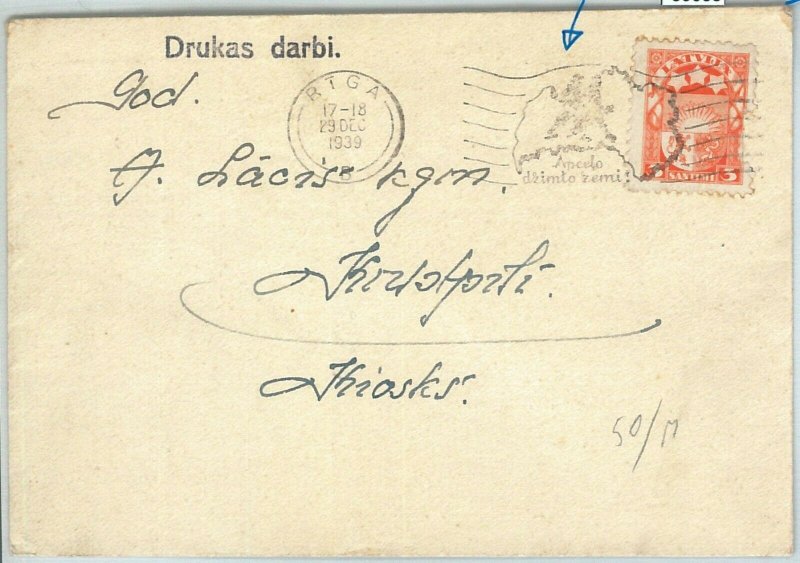 Drukas darbi.
God.
RĪGA
17-18
29 DEC
1939
B
Apceļo
dzimto zemi!
LATVIJA
3 SANTIMI 3
J. Lācis kgm.
Kiosks.
50/M